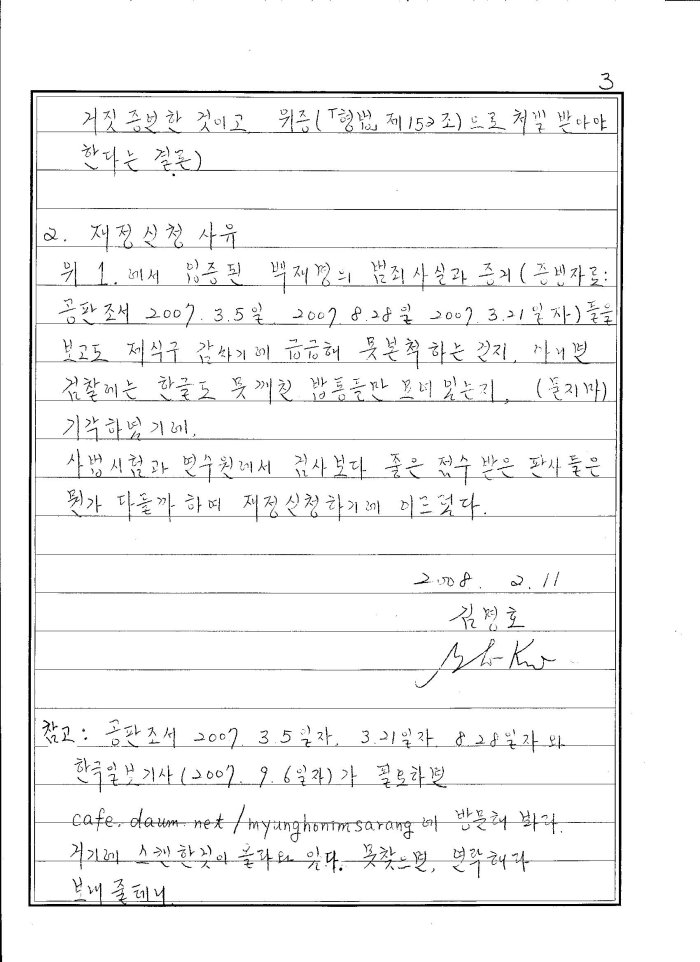 3
거짓 증언한 것이고 위증(「형법」제152조)으로 처벌 받아야
한다는 결론)
2. 재정신청 사유
위 1.에서 입증된 박재영의 범죄사실과 증거(증빙자료:
공판조서 2007. 3.5일 2007. 8.28일 2007. 3.21일자)들을
보고도 제식구 감싸기에 급급해 못본척 하는 건지, 아니면
검찰에는 한글도 못 깨친 밥통들만 모여 있는지, (둔지마)
기각하였기에,
사법시험과 연수원에서 검사보다 좋은 점수 받은 판사들은
뭔가 다를까 하여 재정신청하기에 이르렀다.
2008. 2. 11
김명호
참고: 공판조서 2007. 3.5일자, 3.21일자, 8.28일자 와
한국일보기사(2007. 9.6일자)가 필요하면
cafe.daum.net/myunghonimsarang에 방문해 봐라.
거기에 스캔한것이 올라와 있다. 못찾으면, 연락해라
보내 줄테니.